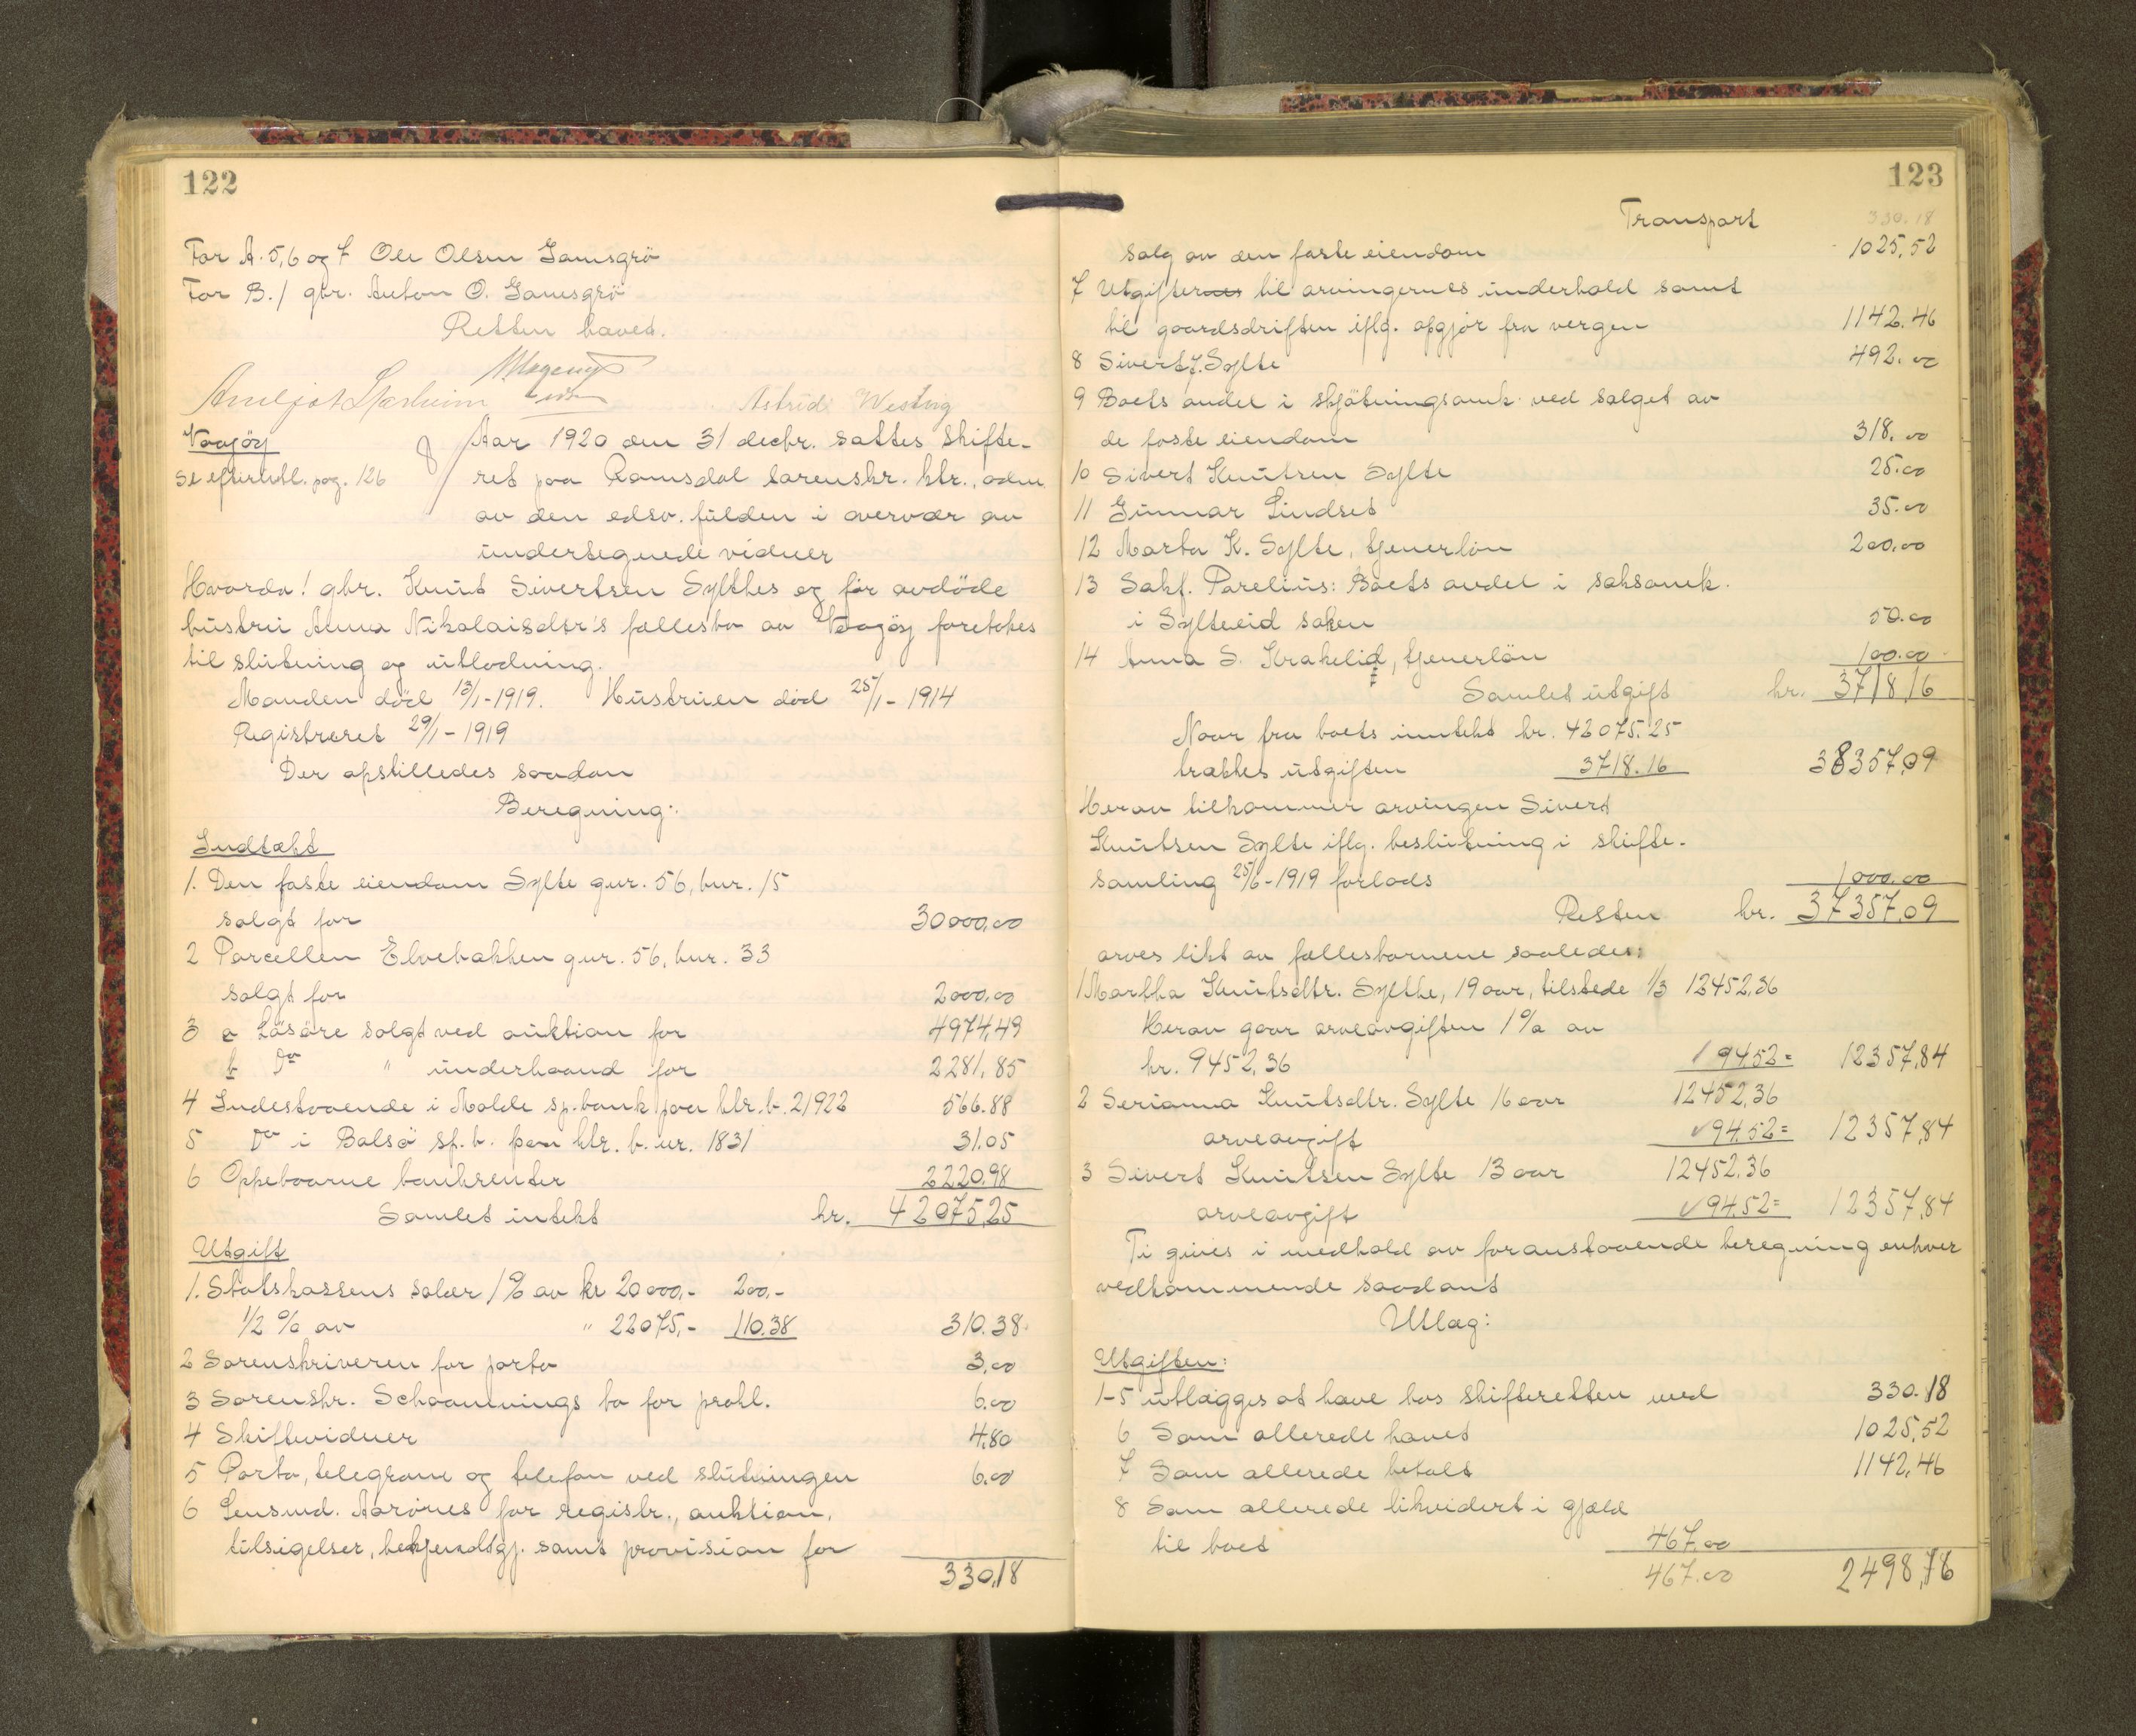 122
For A. 5, 6 og 7 Ole Olsen Gamsgrö
For B. 1 gbr. Anton O. Gamsgrö
Retten hævet.
Astrid Westvig
Vaagöy
Aar 1920 den 31 decbr. sattes skifte-
se eftertutl. pag. 126
ret paa Romsdal sorenskr. ktr., adm.
av den edsv. fuldm i overvær av
undertegnede vidner
Hvorda! gbr. Knut Sivertsen Sylthes og før avdöde
hustru Anna Nikolaisdtr's fællesbo av Vaagöy foretokes
til slutning og utlodning.
Manden död 13/1-1919. Hustruen död 25/1-1914
Registreret 29/1-1919
Der opstilledes saadan
Beregning:
Indtækt
1. Den faste eiendom Sylte gnr. 56, bnr. 15
solgt for 30000,00
2 Parcellen Elvebakken gnr. 56, bnr. 33
solgt for 2000,00
3 a Lösöre solgt ved auktion for 4974,49
b Do " underhaand for 2281,85
4 Indestaaende i Molde sp.bank paa ktr. b. 21922 566.88
5 Do i Bolsö sp. b. paa ktr. b. nr. 1831 31.05
6 Oppebaarne bankrenter 2220.98
Samlet intekt kr. 42075,25
Utgift
1. Statskassens salær 1% av kr 20000,- 200,-
1/2 % av " 22075,- 110.38 310.38
2 Sorenskriveren for porto 3,00
3 Sorenskr. Schaanings bo for prokl. 6.00
4 Skiftevidner 4,80
5 Porto, telegram og telefon ved slutningen 6.00
6 Lensmd. Aarönes for registr., auktion,
tilsigelser, bekjendtgj. samt provision for
330,18
123
Transport 330.18
salg av den faste eiendom 1025,52
7 Utgifternes til arvingernes underhold samt
til gaardsdriften iflg. opgjör fra vergen 1142.46
8 Sivert J. Sylte 492.00
9 Boets andel i skjötningsomk. ved salget av
de faste eiendom 318.00
10 Sivert Knutsen Sylte 25.00
11 Gunnar Lindset 35.00
12 Marta K. Sylte, tjenerlön 200,00
13 Sakf. Parelius: Boets andel i saksomk.
i Sylteeid saken 50.00
14 Anna S. Krakelid, tjenerlön 100.00
Samlet utgift kr. 3718,16
Naar fra boets inntekt kr. 42075.25
trækkes utgiften 3718.16 38357,09
Herav tilkommer arvingen Sivert
Knutsen Sylte iflg. beslutning i skifte-
samling 25/6-1919 forlods 1000,00
Resten kr. 37357,09
arves likt av fællesbarnene saaledes:
1 Martha Knutsdtr. Sylthe, 19 aar, tilstede 1/3 12452,36
Herav gaar arveavgiften 1% av
kr. 9452,36 √ 94.52 = 12357,84
2 Serianna Knutsdtr. Sylte 16 aar 12452,36
arveavgift √ 94.52 = 12357,84
3 Sivert Knutsen Sylte 13 aar 12452,36
arveavgift √ 94,52 = 12357,84
Ti gives i medhold av foranstaaende beregning enhver
vedkommende saadant
Utlæg:
Utgiften:
1-5 utlægges at have hos skifteretten med 330.18
6 Som allerede hævet 1025,52
7 Som allerede betalt 1142,46
8 Som allerede likvidert i gjæld
til boet 467,00
467.00 2498,16